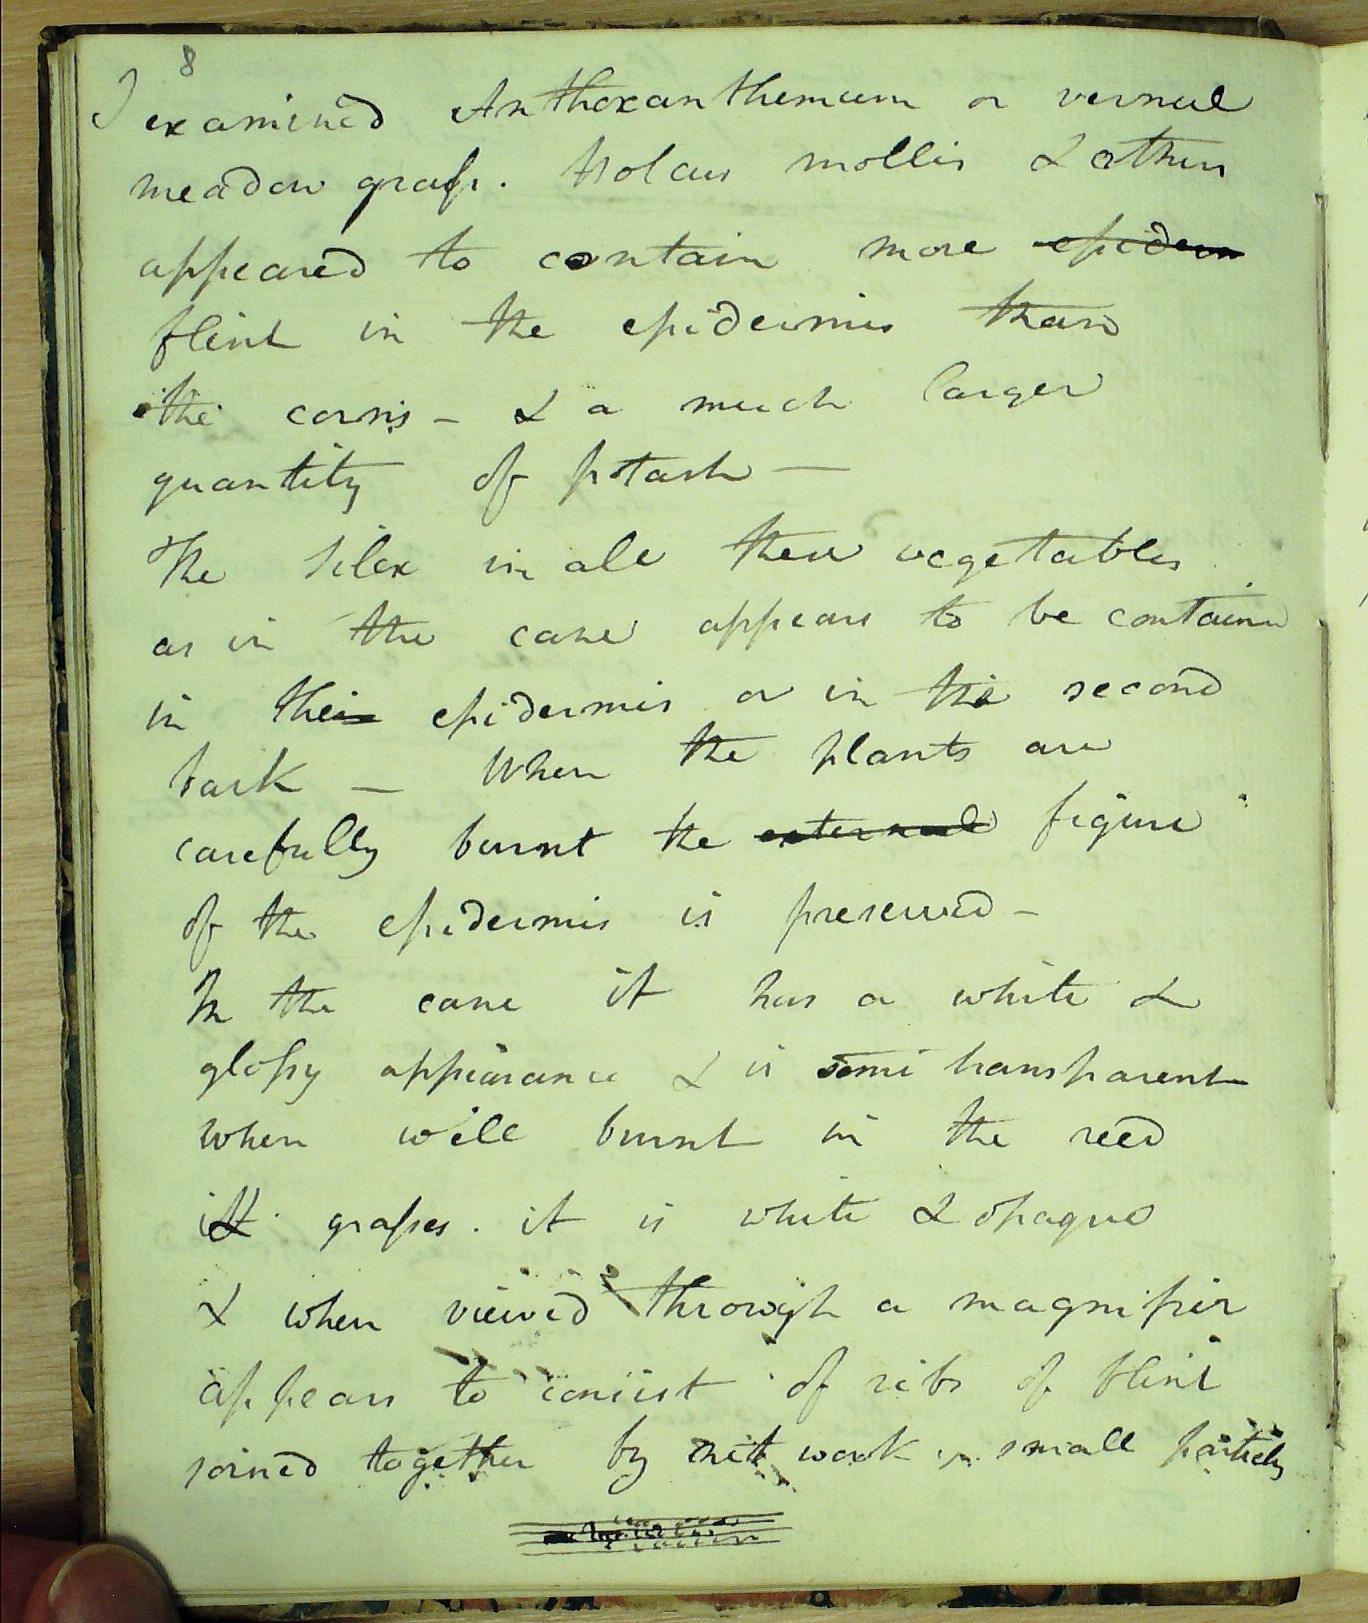 8
I examined Anthoxanthemum or vernal
meadow grass. Holcus mollis & others
appeared to contain more epiderm
flint in the epidermis than
the corns - & a much larger
quantity of potash —
The Silex in all these vegetables
as in the cane appears to be contained
in their epidermis or in the second
bark — When the plants are
carefully burnt the external figure
of the epidermis is preserved -
In the cane it has a white &
glossy appearance & is semi transparent
when well burnt in the reed
& grasses. it is white & opaque
& when viewed through a magnifier
appears to consist of ribs of flint
joined together by net work small particles